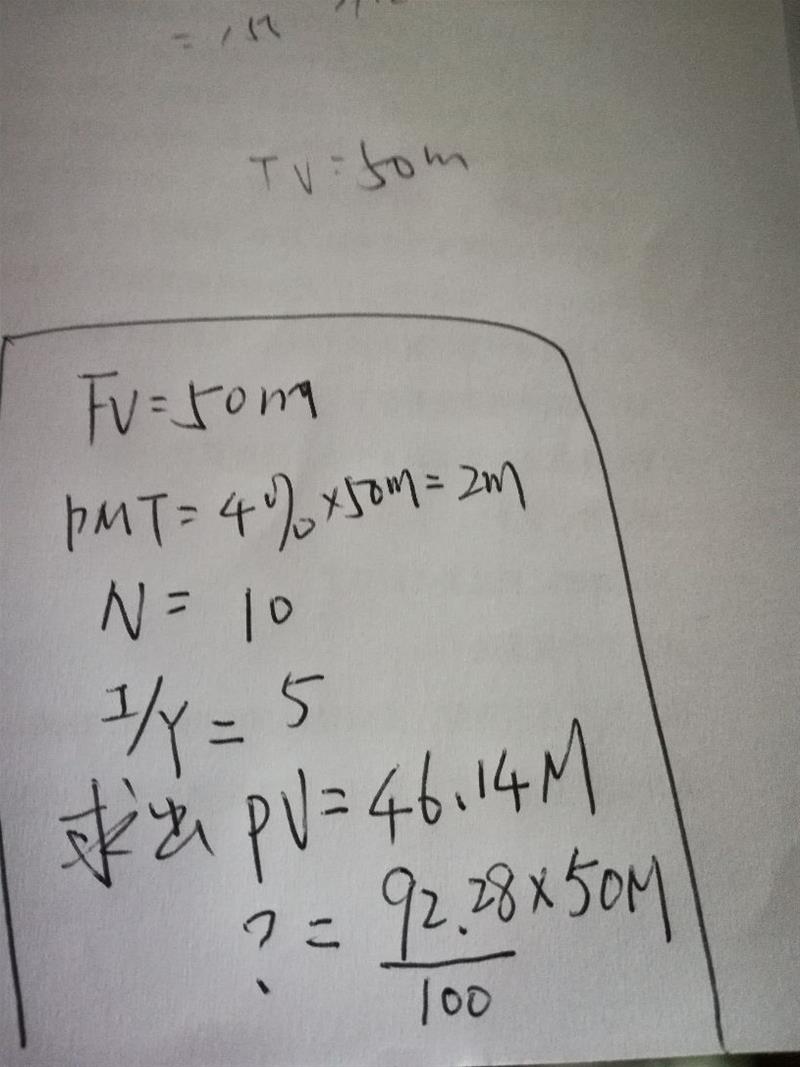 TV=50m
FV=50m
PMT=4%×50m=2m
N=10
I/Y=5
求出 PV=46.14M
?=92.28×50M
100